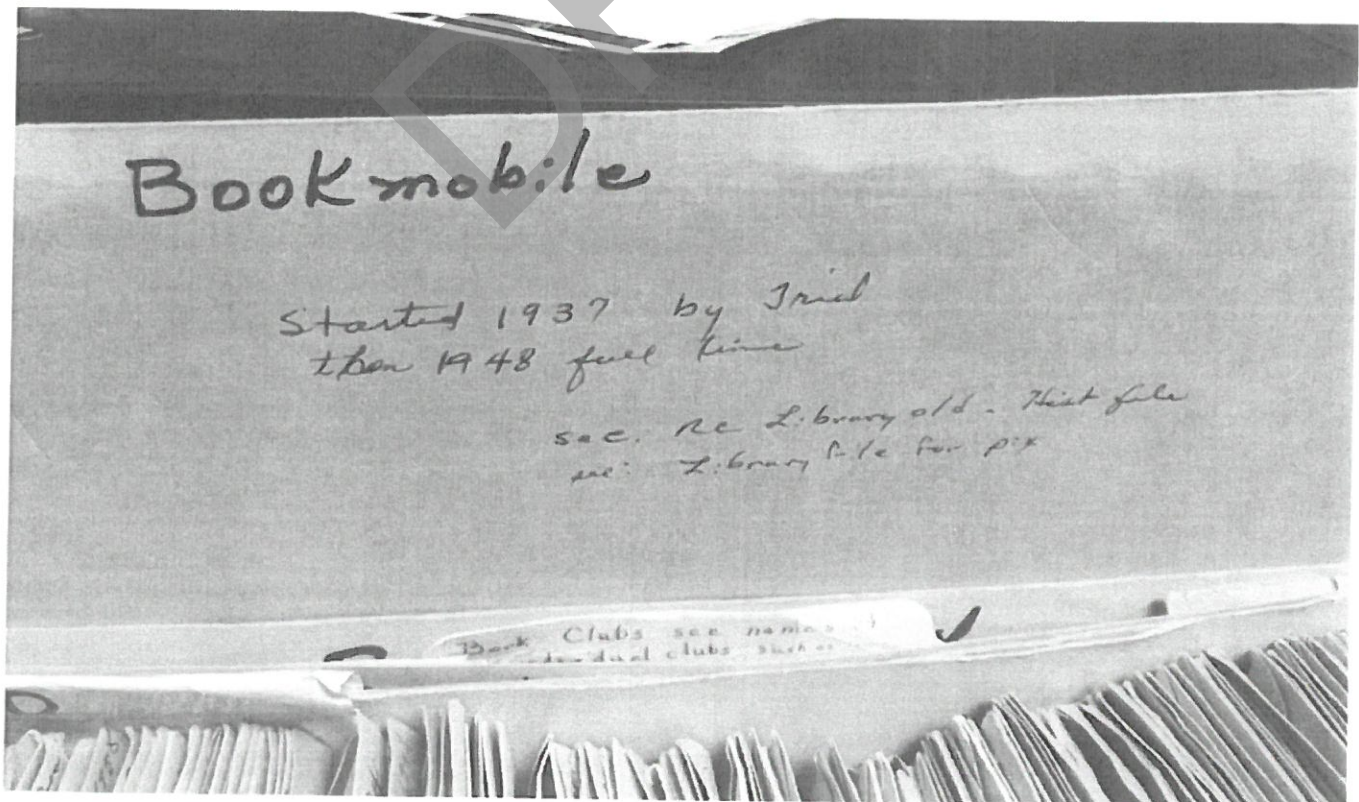 Bookmobile
Started 1937 by Trial
then 1948 full time
see. Re Library old - Hist file
see: Library file for pix
Book Clubs see names
clubs such as